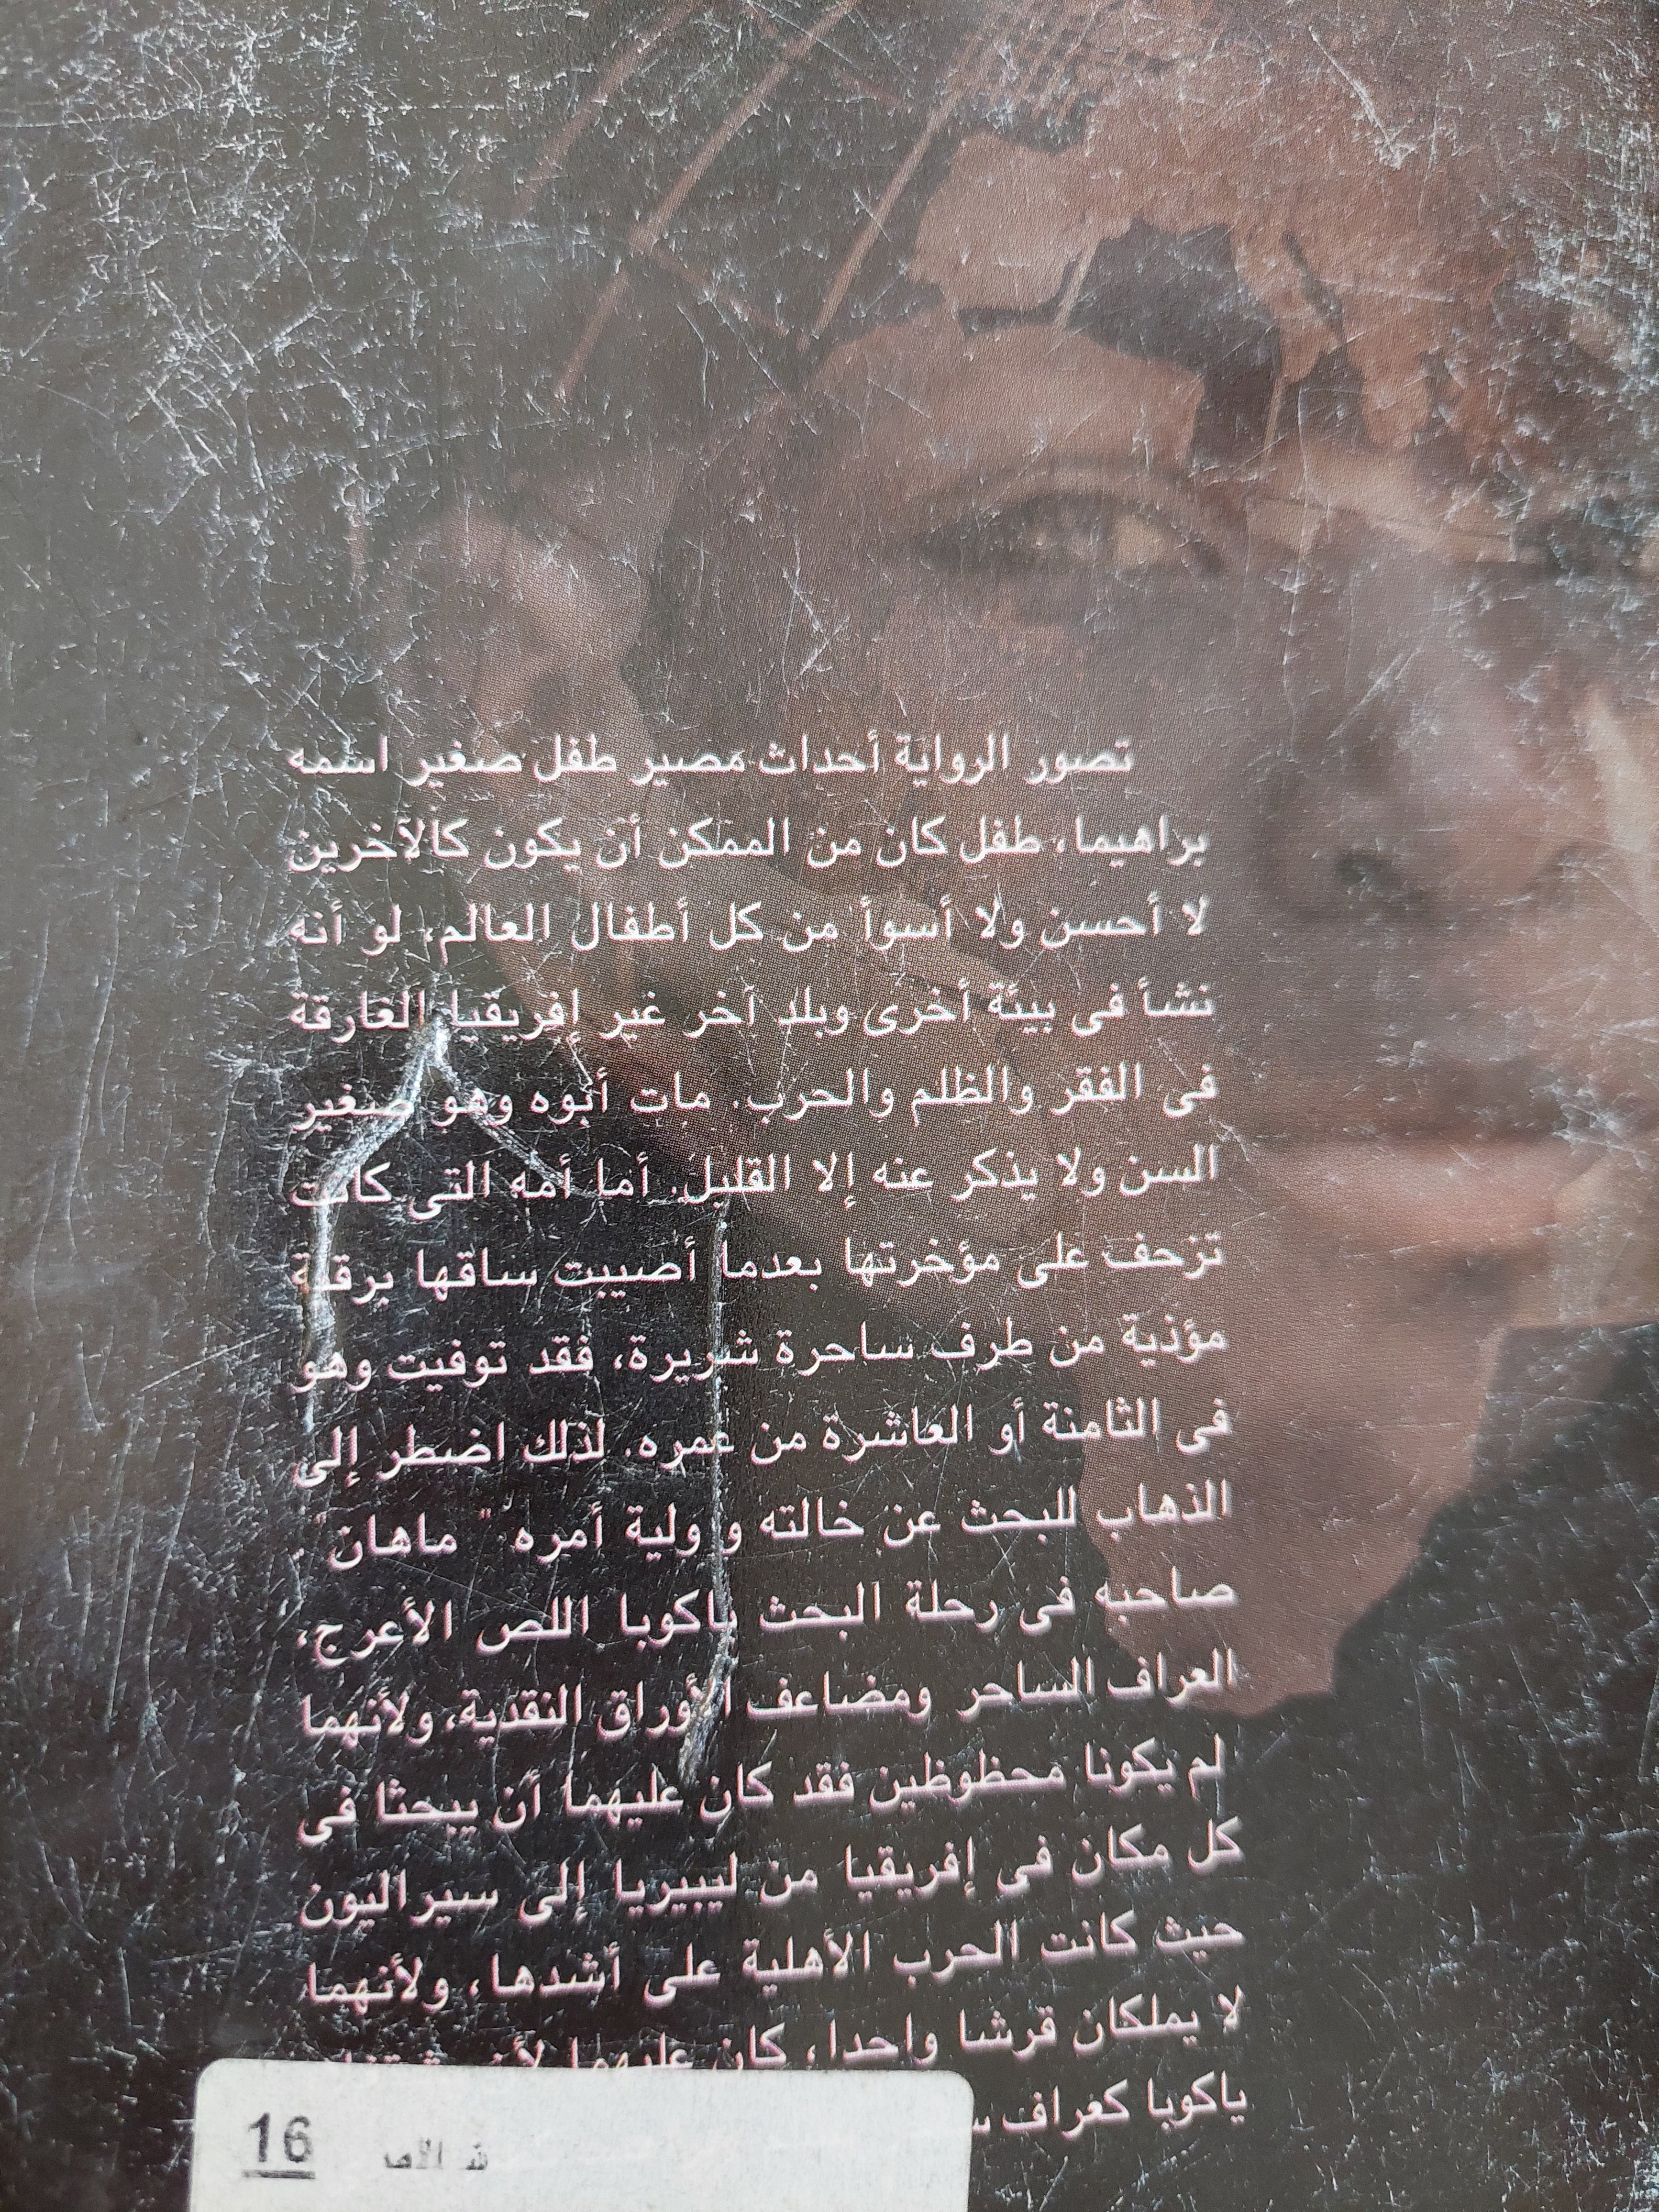 تصور الرواية أحداث مصير طفل صغير اسمه
براهيما، طفل كان من الممكن أن يكون كالآخرين
لا أحسن ولا أسوأ من كل أطفال العالم، لو أنه
نشأ فى بيئة أخرى وبلد آخر غير إفريقيا الغارقة
فى الفقر والظلم والحرب. مات أبوه وهو صغير
السن ولا يذكر عنه إلا القليل. أما أمه التى كانت
تزحف على مؤخرتها بعدما أصيبت ساقها برقية
مؤذية من طرف ساحرة شريرة، فقد توفيت وهو
فى الثامنة أو العاشرة من عمره. لذلك اضطر إلى
الذهاب للبحث عن خالته و ولية أمره " ماهان".
صاحبه فى رحلة البحث ياكوبا اللص الأعرج،
العراف الساحر ومضاعف الأوراق النقدية، ولأنهما
لم يكونا محظوظين فقد كان عليهما أن يبحثا فى
كل مكان فى إفريقيا من ليبيريا إلى سيراليون
حيث كانت الحرب الأهلية على أشدها، ولأنهما
لا يملكان قرشا واحدا، كان عليهما
ياكوبا كعراف
16